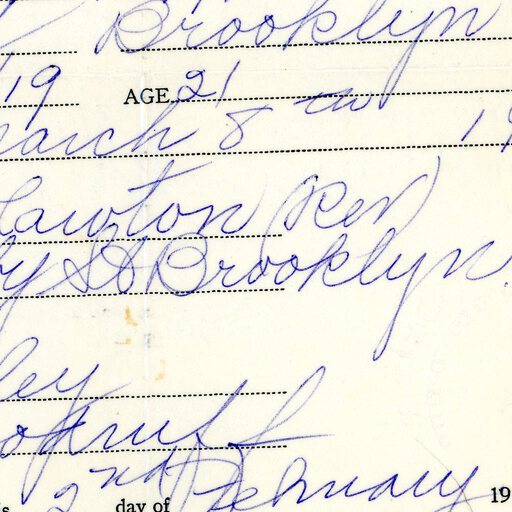 Brooklyn
19 AGE 21
March 8th 19
Lawton (Rev)
St Brooklyn.
ley
2nd day of February 19